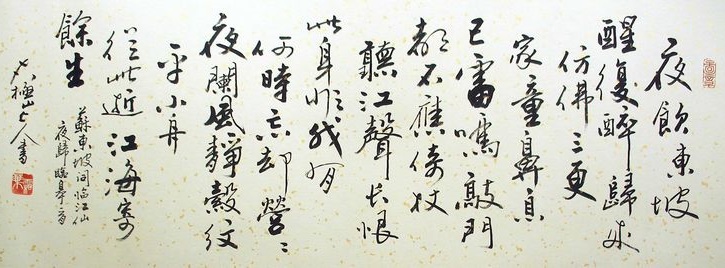 夜飲東坡
醒復醉歸來
仿佛三更
家童鼻息
已雷鳴敲門
都不應倚杖
聽江聲長恨
此身非我有
何時忘却營〻
夜闌風靜縠紋
平小舟
從此逝江海寄
餘生
蘇東坡詞臨江仙
夜歸臨皋
極山上人書